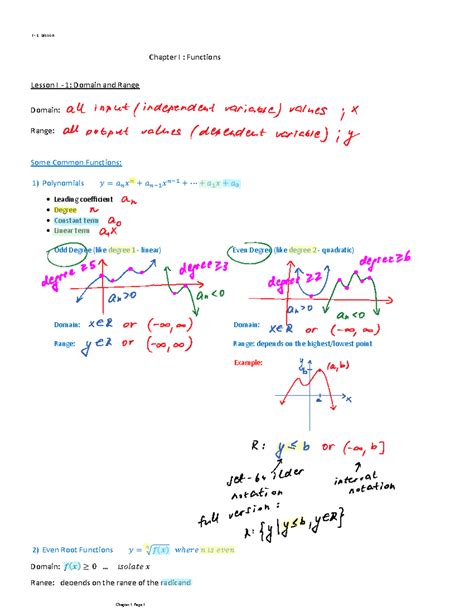 I - 1 Lesson
Chapter I : Functions
Lesson I - 1: Domain and Range
Domain: all input (independent variable) values ; x
Range: all output values (dependent variable) ; y
Some Common Functions:
1) Polynomials y = aₙxⁿ + aₙ₋₁xⁿ⁻¹ + ⋯ + a₁x + a₀
• Leading coefficient aₙ
• Degree n
• Constant term a₀
• Linear term a₁x
Odd Degree (like degree 1 - linear) Even Degree (like degree 2 - quadratic)
degree ≥5 degree ≥3 degree ≥2 degree ≥6
aₙ>0 aₙ<0 aₙ>0 aₙ<0
Domain: x∈R or (-∞,∞) Domain: x∈R or (-∞,∞)
Range: y∈R or (-∞,∞) Range: depends on the highest/lowest point
Example:
y
b (a,b)
a x
R: y ≤ b or (-∞, b]
set-builder notation
interval notation
full version:
R: {y | y≤b, y∈R}
2) Even Root Functions y = ⁿ√f(x) where n is even
Domain: f(x) ≥ 0 … isolate x
Range: depends on the range of the radicand
Chapter I Page 1